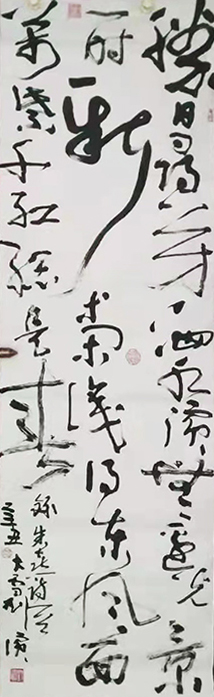 勝日尋芳泗水濱無邊光景
一時新等閑識得東風面
萬紫千紅總是春
錄朱熹詩
辛丑大雪